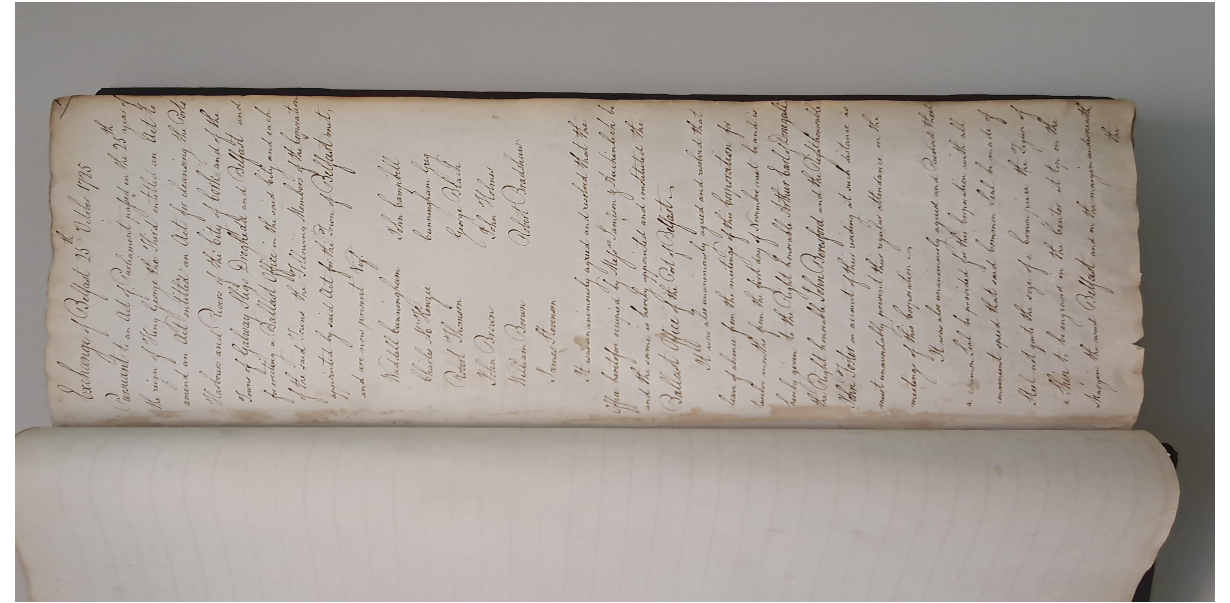 Exchange of Belfast 25th October 1785
Pursuant to an Act of Parliament passed in the 25th year of
the reign of King George the Third entitled an Act to
amend an Act entitled an Act for cleansing the Ports
Harbours and Rivers of the City of Cork and of the
Towns of Galway Sligo Drogheda and Belfast and
for erecting a Ballast Office in the said City and each
of the said Towns the following Members of the Corporation
appointed by said Act for the Town of Belfast met,
and are now present Viz.
Waddell Cunningham John Campbell
Charles McKenzie Cunningham Greg
Robt. Thomson George Black
John Brown John Holmes
William Brown Robert Bradshaw
James Stevenson
It was unanimously agreed and resolved that the
Office heretofore occupied by be
and the same is hereby appointed and constituted the
Ballast Office of the Port of Belfast.
It was also unanimously agreed and resolved that
leave of absence from the meetings of this Corporation for
twelve months from the first day of November next be and is
hereby given to the Right honorable Arthur Earl of Donegall
the Right honorable John Beresford and the Right honorable
John on account of their residing at such distance as
must unavoidably prevent their regular attendance on the
meetings of this Corporation
It was also unanimously agreed and Resolved that
a common Seal be provided for this Corporation with all
convenient speed that said common Seal be made of
Steel not quite the size of a Crown piece the Figure of
a Ship to be engraved on the Center at top on the
Margin the word Belfast and on the margin underneath
the